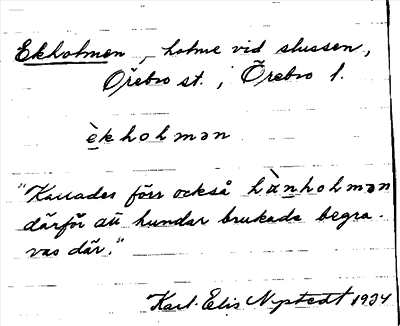 Ekholmen, holme vid slussen,
Örebro st., Örebro l.
èkholmən
"Kallades förr också hànholmən
därför att hundar brukade begra-
vas där."
Karl-Elis Nystedt 1934